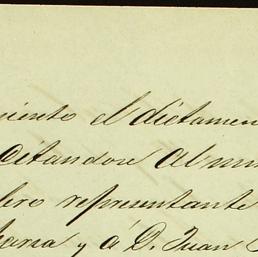 miento el dictamen
citandose al mi
bro representante
haria y á D. Juan